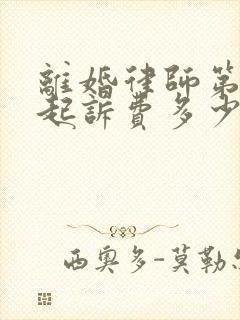 離婚律師第
起訴費多少
西奧多-莫勒